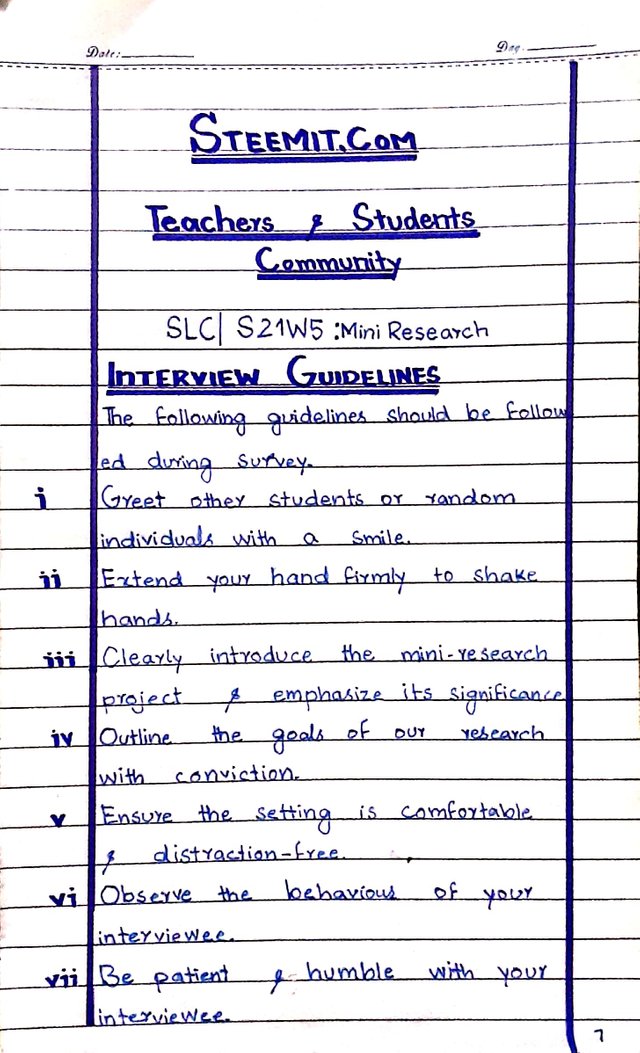 Date:
Day.
STEEMIT.COM
Teachers & Students
Community
SLC| S21W5 :Mini Research
INTERVIEW GUIDELINES
The following guidelines should be follow
ed during survey.
i Greet other students or random
individuals with a smile.
ii Extend your hand firmly to shake
hands.
iii Clearly introduce the mini-research
project & emphasize its significance
iv Outline the goals of our research
with conviction.
v Ensure the setting is comfortable
& distraction-free.
vi Observe the behavious of your
interviewee.
vii Be patient & humble with your
interviewee.
7